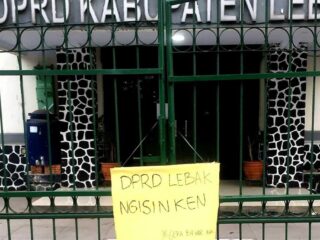 DPRD KABUPATEN LE
DPRD LEBAK
NGISIN KEN